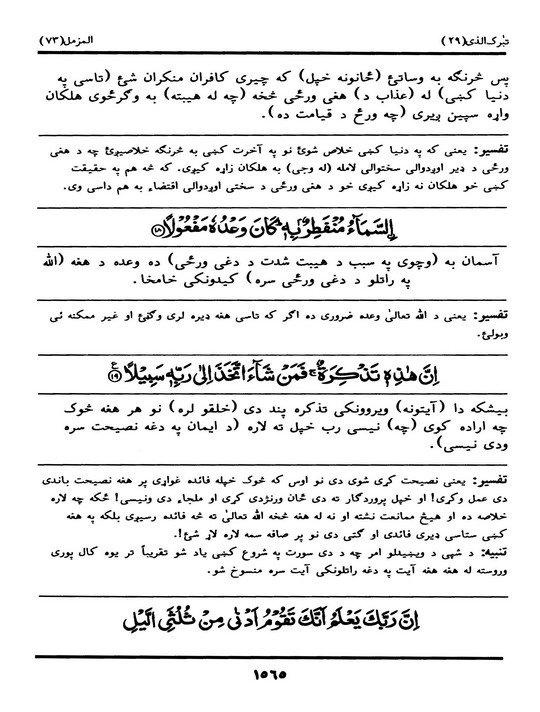 تبرک الذی (۲۹) المزمل (۷۳)
پس څرنګه به وساتئ (ځانونه خپل) که چیرې کافران منکران شئ (تاسې په
دنیا کښې) له (عذاب د) هغې ورځې څخه (چه له هیبته) به وګرځوی هلکان
واړه سپین ږیری (چه ورځ د قیامت ده).
تفسیر: یعنې که په دنیا کښې خلاص شوئ نو په آخرت کښې به څرنګه خلاصیږئ چه د هغې
ورځې د ډیر اوږدوالی سختوالی لامله (له وجې) به هلکان زاړه کیږی. که څه هم په حقیقت
کښې خو هلکان نه زاړه کیږی خو د هغې ورځې د سختې اوږدوالی اقتضاء به هم داسې وی.
اِلسَّمَآءُ مُنْفَطِرٌۢ بِهٖ ؕ كَانَ وَعْدُهٗ مَفْعُوْلًا ﴿۱۸﴾
آسمان به (وچوی په سبب د هیبت شدت د دغې ورځې) ده وعده د هغه (الله
په راتلو د دغې ورځې سره) کیدونکې خامخا.
تفسیر: یعنې د الله تعالیٰ وعده ضروری ده اګر که تاسې هغه ډیره لرې وګڼئ او غیر ممکنه ئې
وبولئ.
اِنَّ هٰذِهٖ تَذْكِرَةٌ ۚ فَمَنْ شَآءَ اتَّخَذَ اِلٰى رَبِّهٖ سَبِيْلًا ﴿۱۹﴾ ع
بیشکه دا (آیتونه) ویروونکی تذکره پند دی (خلقو لره) نو هر هغه څوک
چه اراده کوی (چه) نیسی رب خپل ته لاره (د ایمان په دغه نصیحت سره
ودې نیسی).
تفسیر: یعنې نصیحت کړی شوی دی نو اوس که څوک خپله فائده غواړی پر هغه نصیحت باندې
دې عمل وکړی! او خپل پروردګار ته دې ځان ورنژدې کړی او ملجاء دې ونیسی! ځکه چه لاره
خلاصه ده او هیڅ ممانعت نشته او نه له هغه څخه الله تعالیٰ ته څه فائده رسیږی بلکه په هغه
کښې ستاسې ډیرې فائدې او ګټې دی نو پر صافه سمه لاره لاړ شئ!.
تنبیه: د شپې د ویښیدلو امر چه د دې سورت په شروع کښې یاد شو تقریباً تر یوه کال پورې
وروسته له هغه هغه آیت په دغه راتلونکی آیت سره منسوخ شو.
اِنَّ رَبَّكَ يَعْلَمُ اَنَّكَ تَقُوْمُ اَدْنٰى مِنْ ثُلُثَيِ الَّيْلِ
۱۵۶۵